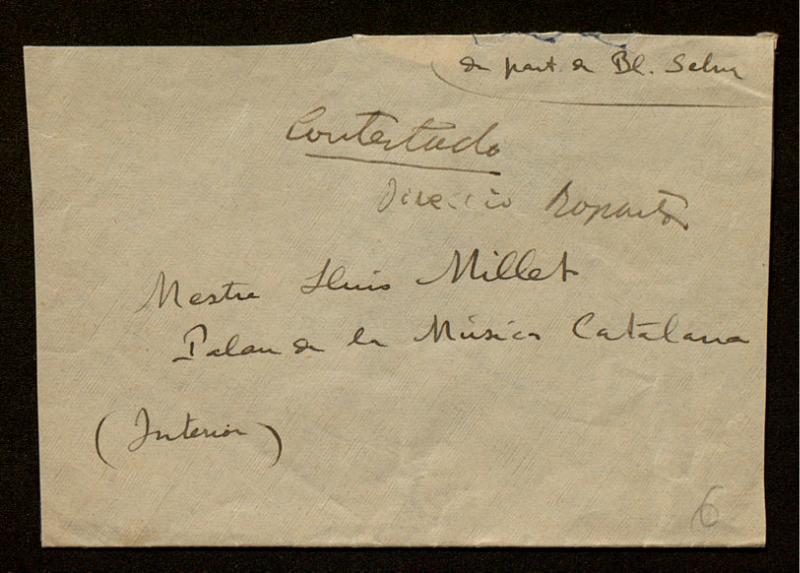 de part de Bl. Selva
Contestado
Direcció Ropartz
Mestre Lluis Millet
Palau de la Música Catalana
(Interior)
6